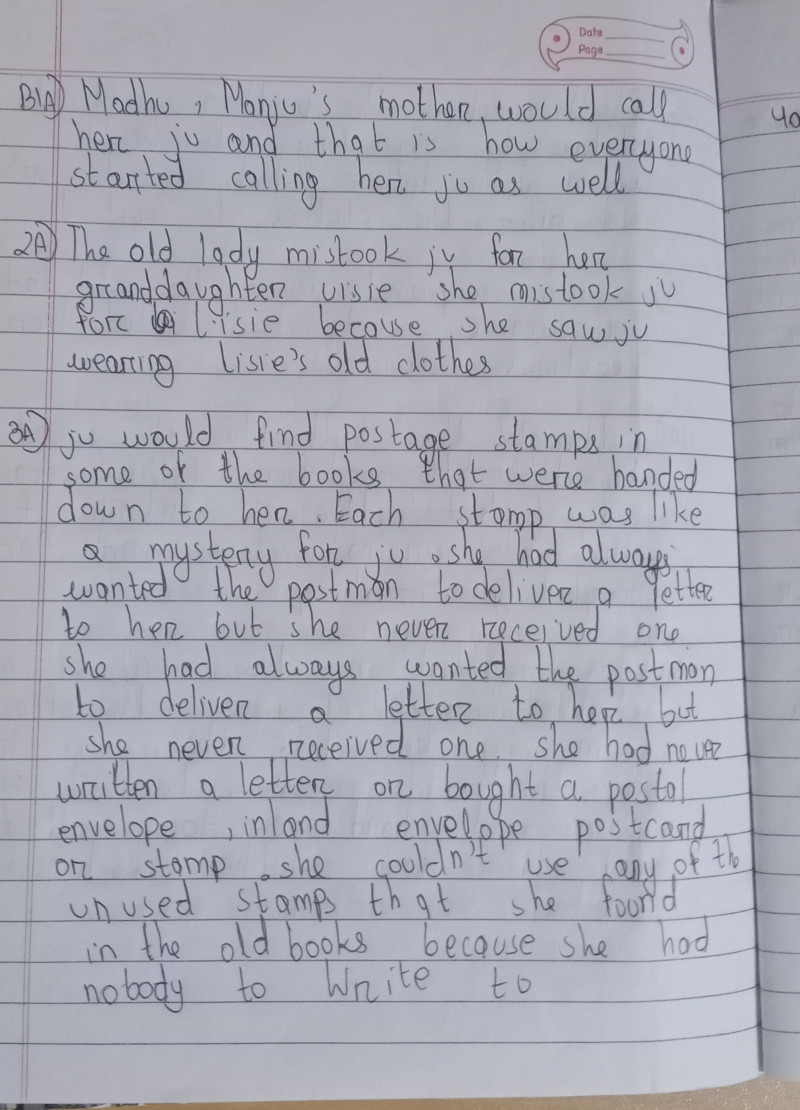 Date
Page
B1A) Madhu, Manju's mother, would call
her ju and that is how everyone
started calling her ju as well
2A) The old lady mistook ju for her
granddaughter visie she mistook ju
for Lisie because she saw ju
wearing lisie's old clothes
3A) ju would find postage stamps in
some of the books that were handed
down to her. Each stamp was like
a mystery for ju. she had always
wanted the postman to deliver a letter
to her but she never received one
she had always wanted the postman
to deliver a letter to her but
she never received one. she had never
written a letter or bought a postal
envelope, inland envelope postcard
or stamp. she couldn't use any of the
unused stamps that she found
in the old books because she had
nobody to write to